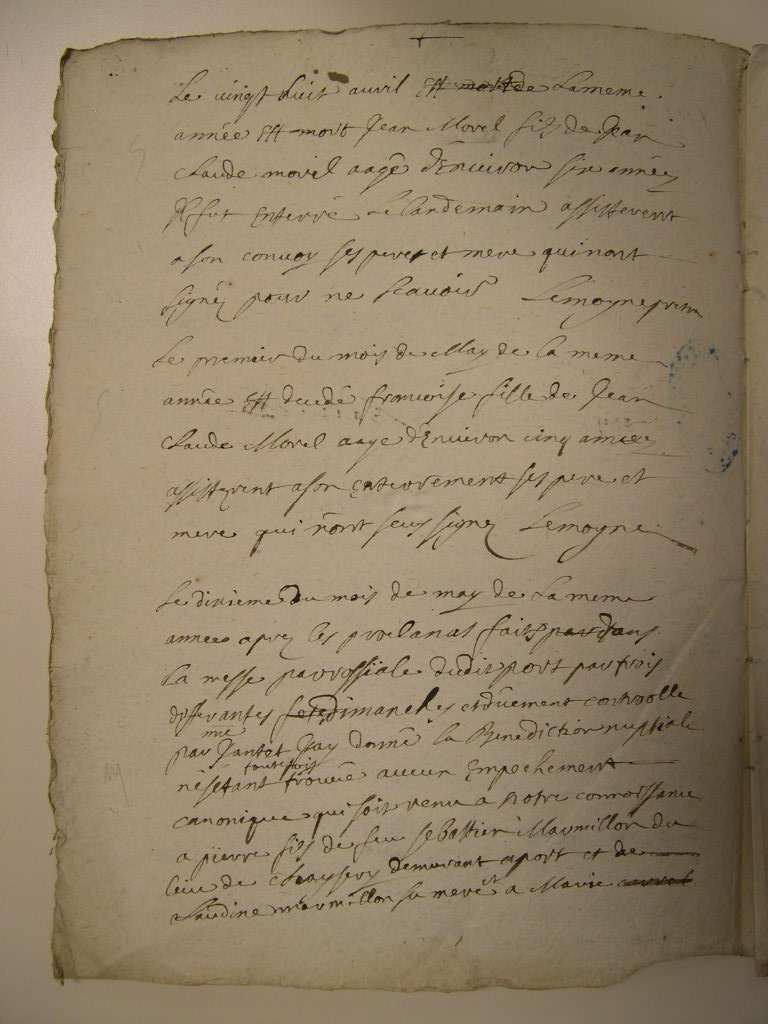 Le vingt huit avril Est mort de La meme
année Est mort Jean Morel fils de Jean
Claude morel aagé d'Environ six années
Et fut Enterré Le landemain assisterent
a son convoy ses pere et mere qui nont
signéz pour ne scavoir Lemoyne
Le premier du mois de May de la meme
année Est decedé francoise fille de Jean
Claude Morel aage d'Environ cinq années
assisterent a son Enterrement ses pere et
mere qui n'ont sceus signez Lemoyne
Le dixieme Du mois de may de La meme
année aprez les proclamas faits dans
La messe parrossiale dudit port par trois
differantes Dimanches et duement controolle
par me Jantet J'ay donné la Benediction nuptiale
n'esetant toutefois trouvée aucun Empechement
canonique qui soit venu a notre connoissance
a pierre fils de feu sebastien Marmillon du
lieu de Chaysery demurant a port et de
Claudine marmillon sa mere et a Marie